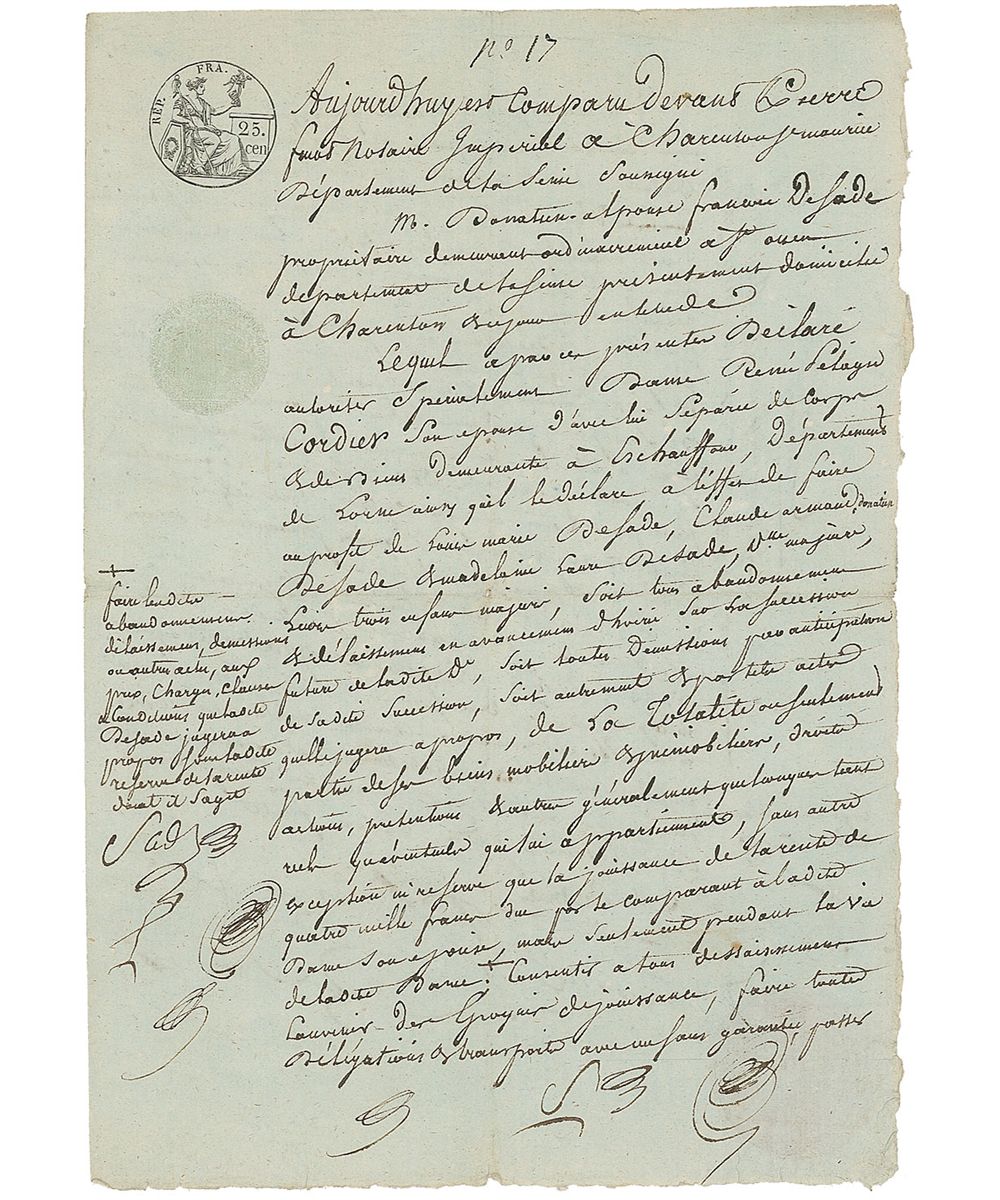 nº 17
REP. FRA.
25.
cen
Aujourdhuy est Comparu devant Pierre
finot Notaire Imperiel a Charenton St maurice
Département de la Seine Soussigné
M. Donatien alponse francois De Sade
propriétaire demeurant ordinairement a St ouen
departement de la Seine présentement domicilié
à Charenton
Lequel a par ces présentes Déclaré
autoriser Spécialement Dame René Pelagie
Cordier Son epouse d'avec lui Séparée de Corps
& de Biens demeurante à Echauffour, Département
de Lorne ainsy quil le déclare, à léffet de faire
au profit de Louis marie De Sade, Claude armand donatien
De Sade & madelaine Laure De Sade, majeure,
Leurs trois enfans majeurs, Soit tous abandonnement
& délaissement en avancement d'hoirie Sur La Succession
future de ladite De, Soit toutes Demissions par anticipation
de Sadite Succession, Soit autrement & par tels actes
quelle jugera apropos, de La Totalité ou Seulement
partie de Ses biens mobiliers & immobiliers, droits
actions, prétentions & autres généralement quelconques tant
réels quéventuels qui lui appartiennent, Sans autre
exception ni réserve que la jouissance de la rente de
quatre mille francs due par le comparant à ladite
Dame Son epouse, mais Seulement pendant la vie
de ladite Dame; + Consentir a tous dessaisissement
Convenir des Epoques de jouissance, faire toute
Délégations & transports avec ou Sans garantie, passer
+
faire lesdits
abandonnement
délaissement, demissions
ou autres actes, aux
prix, Charges, Clauses
& Conditions que ladite
De Sade jugera a
propos Sous ladite
reserve de la rente
dont il Sagit
Sade